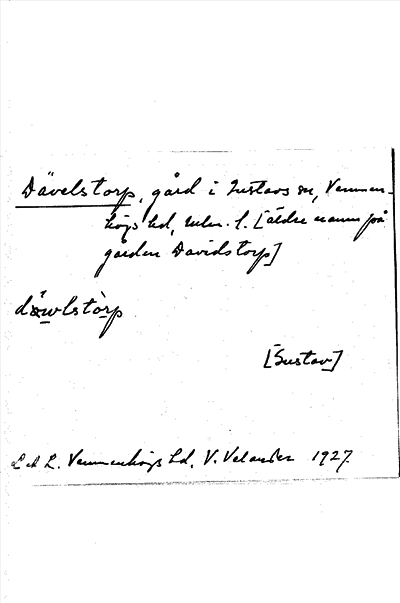 Dävelstorp, gård i Gustavs sn, Vemmen-
högs hd, Mlm. l. [äldre namn på
gården Davidstorp]
dävlstòrp
[Gustav]
L. Vemmenhögs hd, V. Velander 1927.